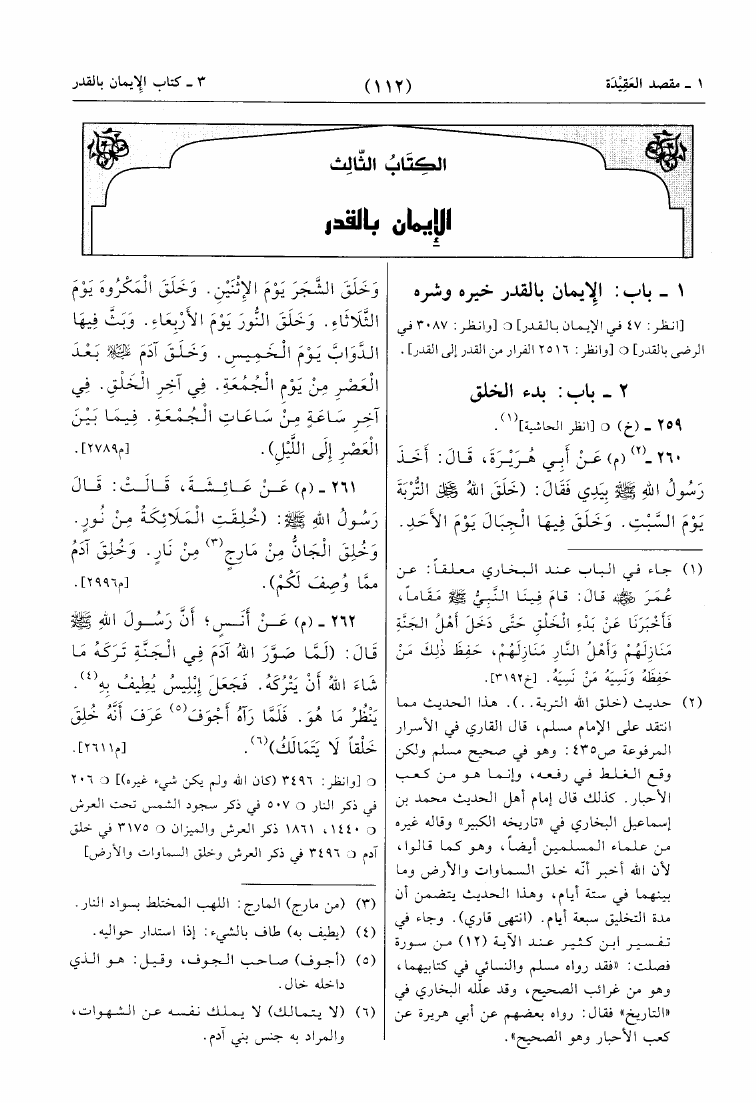 ١ ـ مقصد العَقِيْدَة
(١١٢)
٣ ـ كتاب الإيمان بالقدر
الكِتَابُ الثَّالِث
الإيمان بالقدر
١ ـ باب: الإيمان بالقدر خيره وشره
[انظر: ٤٧ في الإيمان بالقدر] ○ [وانظر: ٣٠٨٧ في
الرضى بالقدر] ○ [وانظر: ٢٥١٦ الفرار من القدر إلى القدر].
٢ ـ باب: بدء الخلق
٢٥٩ ـ (خ) ○ [انظر الحاشية](١).
٢٦٠ ـ(٢) (م) عَنْ أَبِي هُرَيْرَةَ، قَالَ: أَخَذَ
رَسُولُ اللهِ ﷺ بِيَدِي فَقَالَ: (خَلَقَ اللهُ ﷻ التُّرْبَةَ
يَوْمَ السَّبْتِ. وَخَلَقَ فِيهَا الْجِبَالَ يَوْمَ الأَحَدِ.
(١) جاء في الباب عند البخاري معلقاً: عن
عُمَرَ رضي الله عنه قالَ: قامَ فِينَا النَّبِيُّ ﷺ مَقَاماً،
فَأَخْبَرَنَا عَنْ بَدْءِ الْخَلْقِ حَتَّى دَخَلَ أَهْلُ الجَنَّةِ
مَنَازِلَهُمْ وَأَهْلُ النَّارِ مَنَازِلَهُمْ، حَفِظَ ذلِكَ مَنْ
حَفِظَهُ وَنَسِيَهُ مَنْ نَسِيَهُ. [خ٣١٩٢].
(٢) حديث (خلق الله التربة..). هذا الحديث مما
انتقد على الإمام مسلم، قال القاري في الأسرار
المرفوعة ص٤٣٥: وهو في صحيح مسلم ولكن
وقع الغلط في رفعه، وإنما هو من كعب
الأحبار. كذلك قال إمام أهل الحديث محمد بن
إسماعيل البخاري في «تاريخه الكبير» وقاله غيره
من علماء المسلمين أيضاً، وهو كما قالوا،
لأن الله أخبر أنّه خلق السماوات والأرض وما
بينهما في ستة أيام، وهذا الحديث يتضمن أن
مدة التخليق سبعة أيام. (انتهى قاري). وجاء في
تفسير ابن كثير عند الآية (١٢) من سورة
فصلت: «فقد رواه مسلم والنسائي في كتابيهما،
وهو من غرائب الصحيح، وقد علّله البخاري في
«التاريخ» فقال: رواه بعضهم عن أبي هريرة عن
كعب الأحبار وهو الصحيح».
وَخَلَقَ الشَّجَرَ يَوْمَ الإِثْنَيْنِ. وَخَلَقَ الْمَكْرُوهَ يَوْمَ
الثَّلَاثَاءِ. وَخَلَقَ النُّورَ يَوْمَ الأَرْبِعَاءِ. وَبَثَّ فِيهَا
الدَّوَابَّ يَوْمَ الْخَمِيسِ. وَخَلَقَ آدَمَ ﷺ بَعْدَ
الْعَصْرِ مِنْ يَوْمِ الْجُمُعَةِ. فِي آخِرِ الْخَلْقِ. فِي
آخِرِ سَاعَةٍ مِنْ سَاعَاتِ الْجُمْعَةِ. فِيمَا بَيْنَ
الْعَصْرِ إِلَى اللَّيْلِ). [م٢٧٨٩].
٢٦١ ـ (م) عَنْ عَائِشَةَ، قَالَتْ: قَالَ
رَسُولُ اللهِ ﷺ: (خُلِقَتِ الْمَلَائِكَةُ مِنْ نُورٍ.
وَخُلِقَ الْجَانُّ مِنْ مَارِجٍ(٣) مِنْ نَارٍ. وَخُلِقَ آدَمُ
مِمَّا وُصِفَ لَكُمْ). [م٢٩٩٦].
٢٦٢ ـ (م) عَنْ أَنَسٍ؛ أَنَّ رَسُولَ اللهِ ﷺ
قَالَ: (لَمَّا صَوَّرَ اللهُ آدَمَ فِي الْجَنَّةِ تَرَكَهُ مَا
شَاءَ اللهُ أَنْ يَتْرُكَهُ. فَجَعَلَ إِبْلِيسُ يُطِيفُ بِهِ(٤).
يَنْظُرُ مَا هُوَ. فَلَمَّا رَآهُ أَجْوَفَ(٥) عَرَفَ أَنَّهُ خُلِقَ
خَلْقاً لَا يَتَمَالَكُ)(٦). [م٢٦١١].
○ [وانظر: ٣٤٩٦ (كان الله ولم يكن شيء غيره)] ○ ٢٠٦
في ذكر النار ○ ٥٠٧ في ذكر سجود الشمس تحت العرش
○ ١٤٤٠، ١٨٦١ ذكر العرش والميزان ○ ٣١٧٥ في خلق
آدم ○ ٣٤٩٦ في ذكر العرش وخلق السماوات والأرض]
(٣) (من مارج) المارج: اللهب المختلط بسواد النار.
(٤) (يطيف به) طاف بالشيء: إذا استدار حواليه.
(٥) (أجوف) صاحب الجوف، وقيل: هو الذي
داخله خال.
(٦) (لا يتمالك) لا يملك نفسه عن الشهوات،
والمراد به جنس بني آدم.